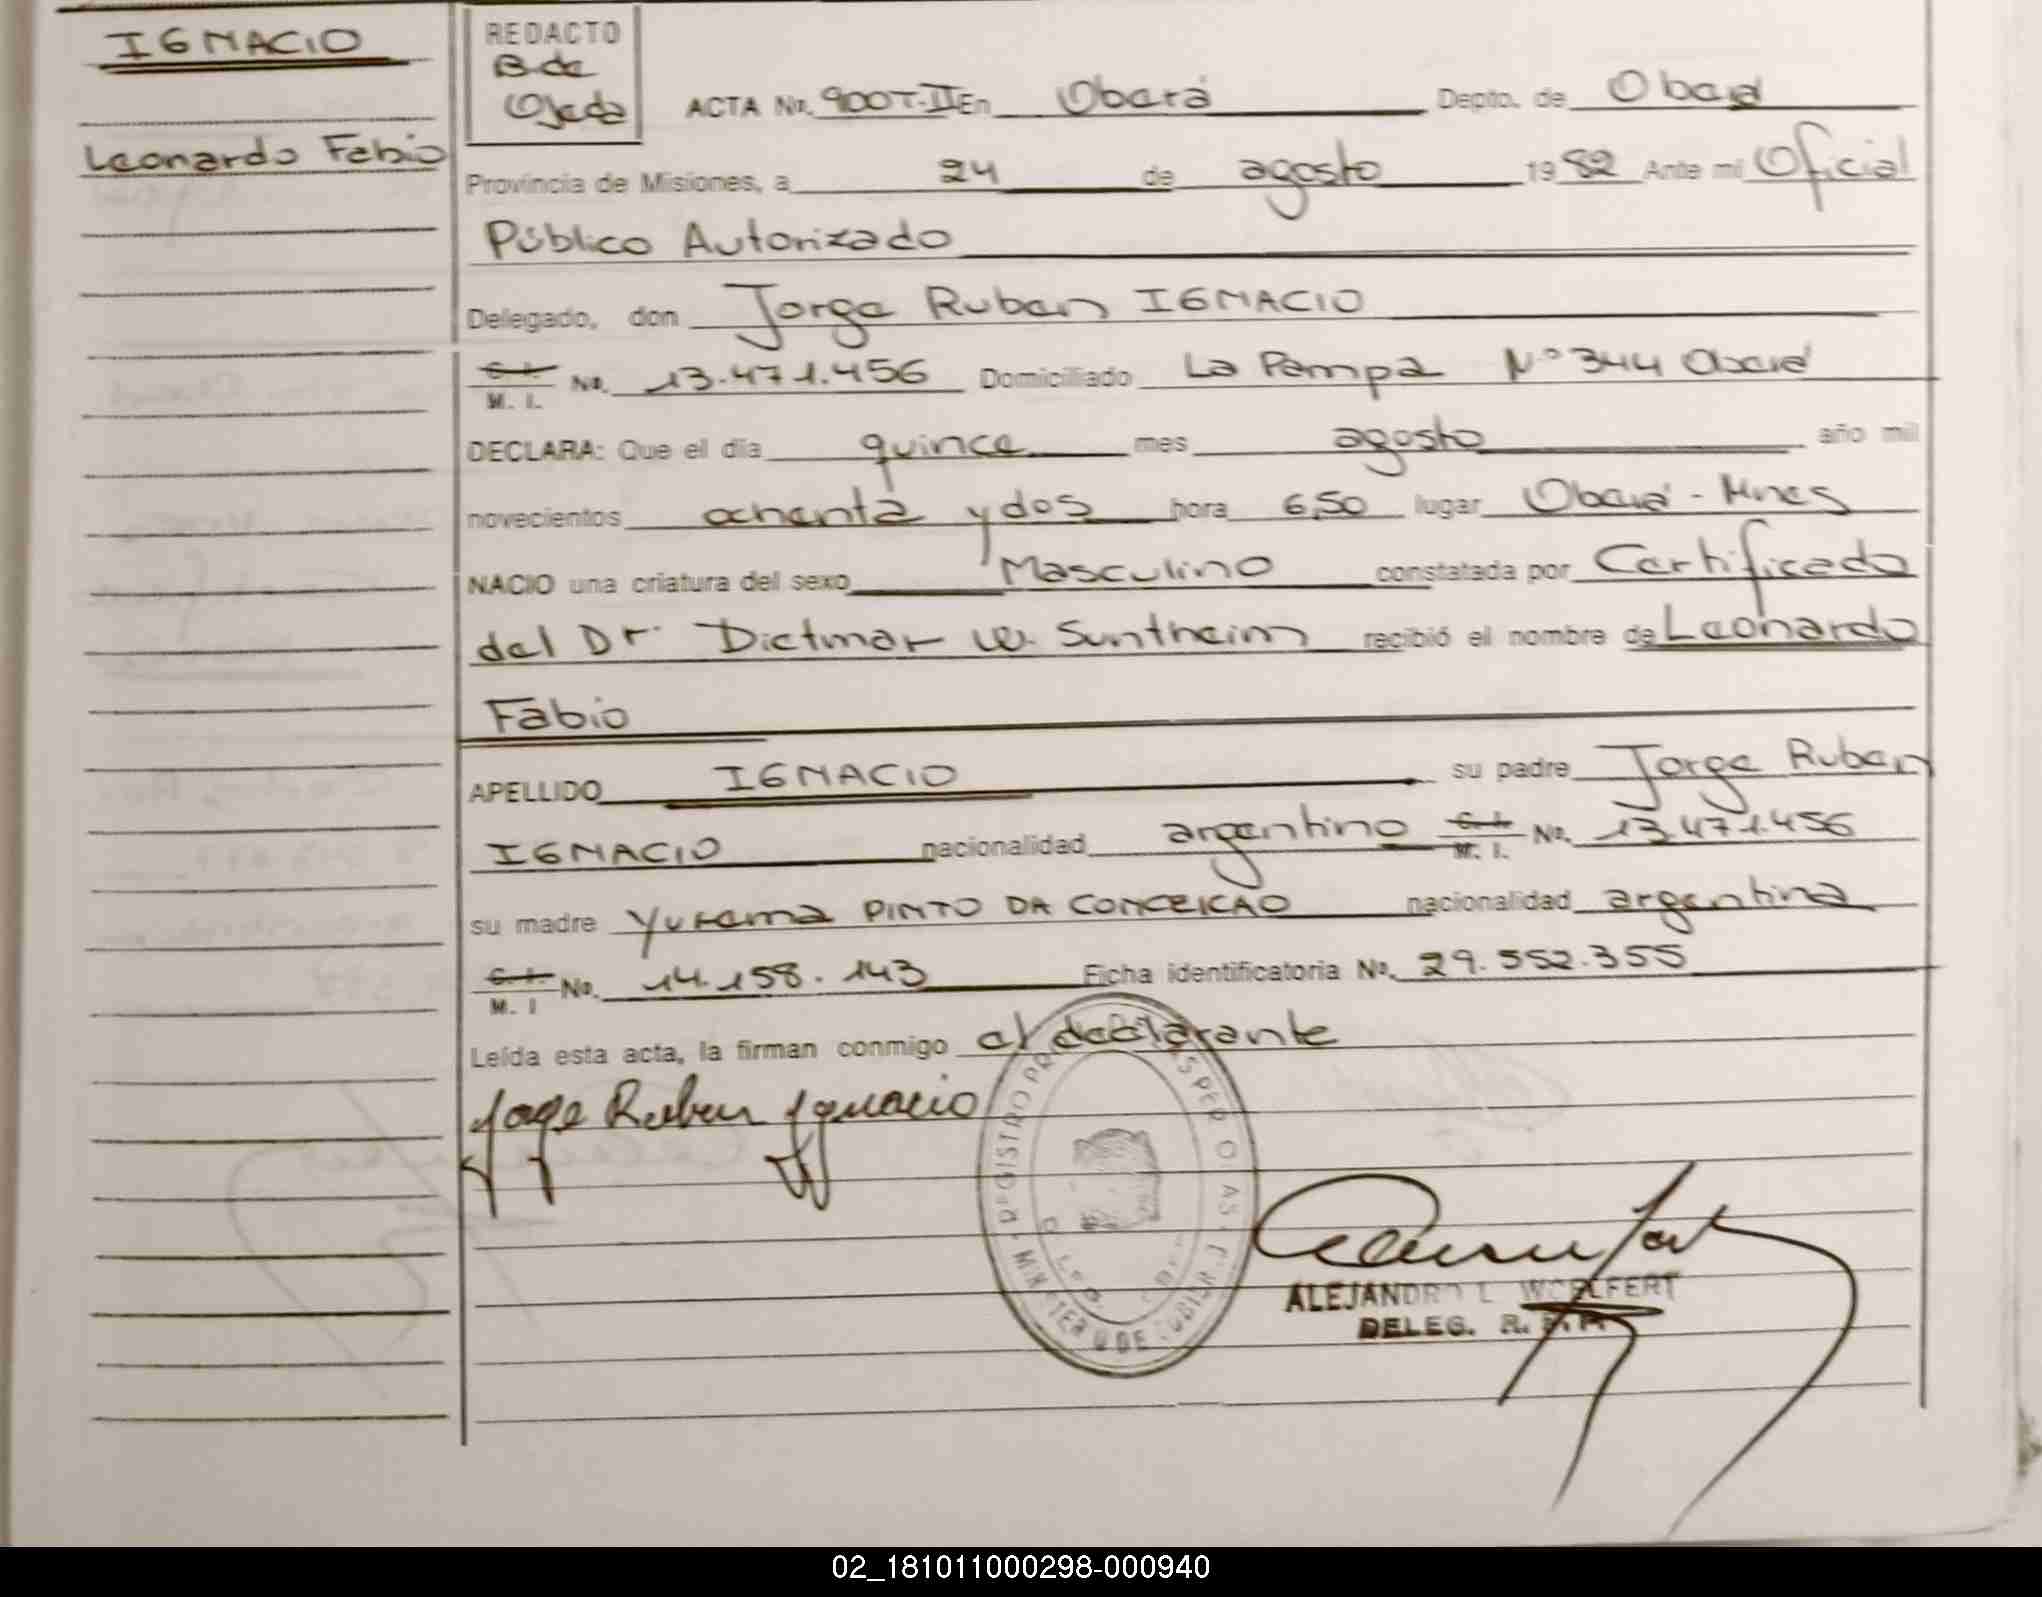 IGNACIO
Leonardo Fabio
REDACTO
B de
Ojeda
ACTA No. 900T-II En Oberá Depto. de Oberá
Provincia de Misiones, a 24 de agosto 1982 Ante mi Oficial
Público Autorizado
Delegado, don Jorge Ruben IGNACIO
C. I. No. 13.471.456 Domiciliado La Pampa N° 344 Oberá
M. I.
DECLARA: Que el día quince mes agosto año mil
novecientos ochenta y dos hora 6,50 lugar Oberá - Mnes
NACIO una criatura del sexo Masculino constatada por Certificado
del Dr. Dietmar W. Suntheim recibió el nombre de Leonardo
Fabio
APELLIDO IGNACIO su padre Jorge Ruben
IGNACIO nacionalidad argentino C. I. No. 13.471.456
M. I.
su madre Yurema PINTO DA CONCEICAO nacionalidad argentina
C. I. No. 14.158.143 Ficha identificatoria No. 29.552.355
M. I
Leída esta acta, la firman conmigo el declarante
Jorge Ruben Ignacio
REGISTRO
MINISTERIO DE
ALEJANDRO L WOELFERT
DELEG. R.
02_181011000298-000940